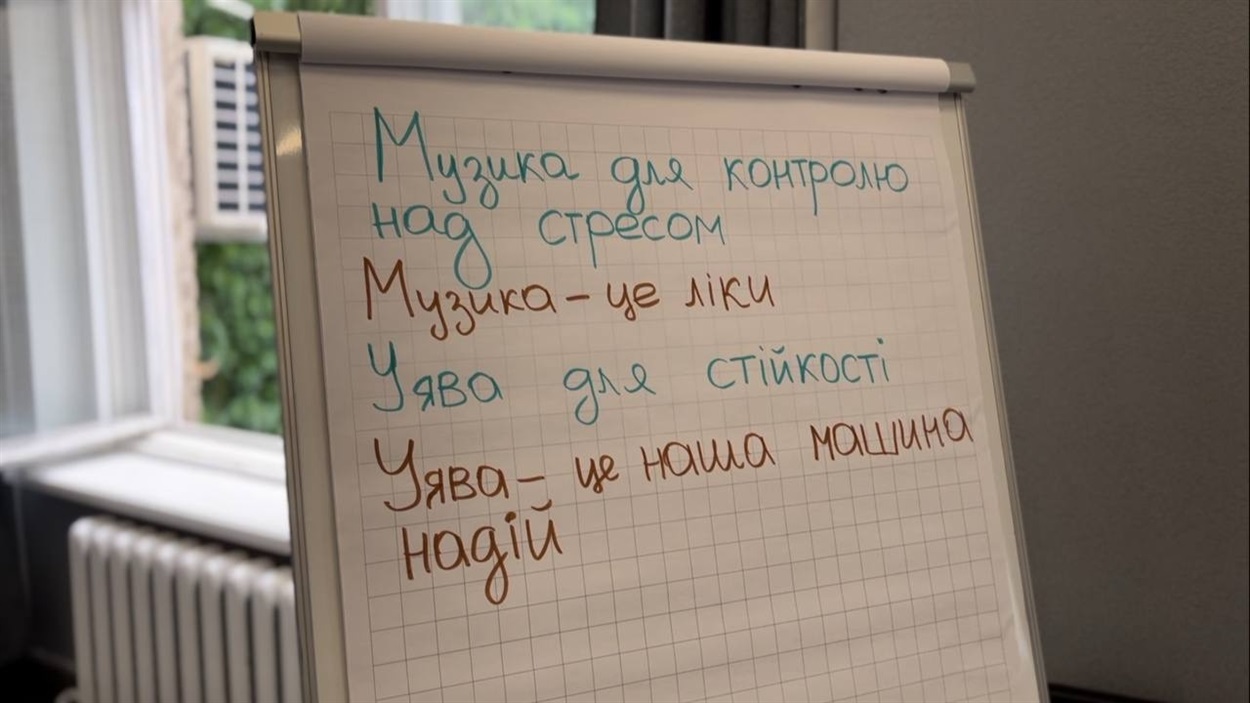 Музика для контролю
над стресом
Музика – це ліки
Уява для стійкості
Уява – це наша машина
надій